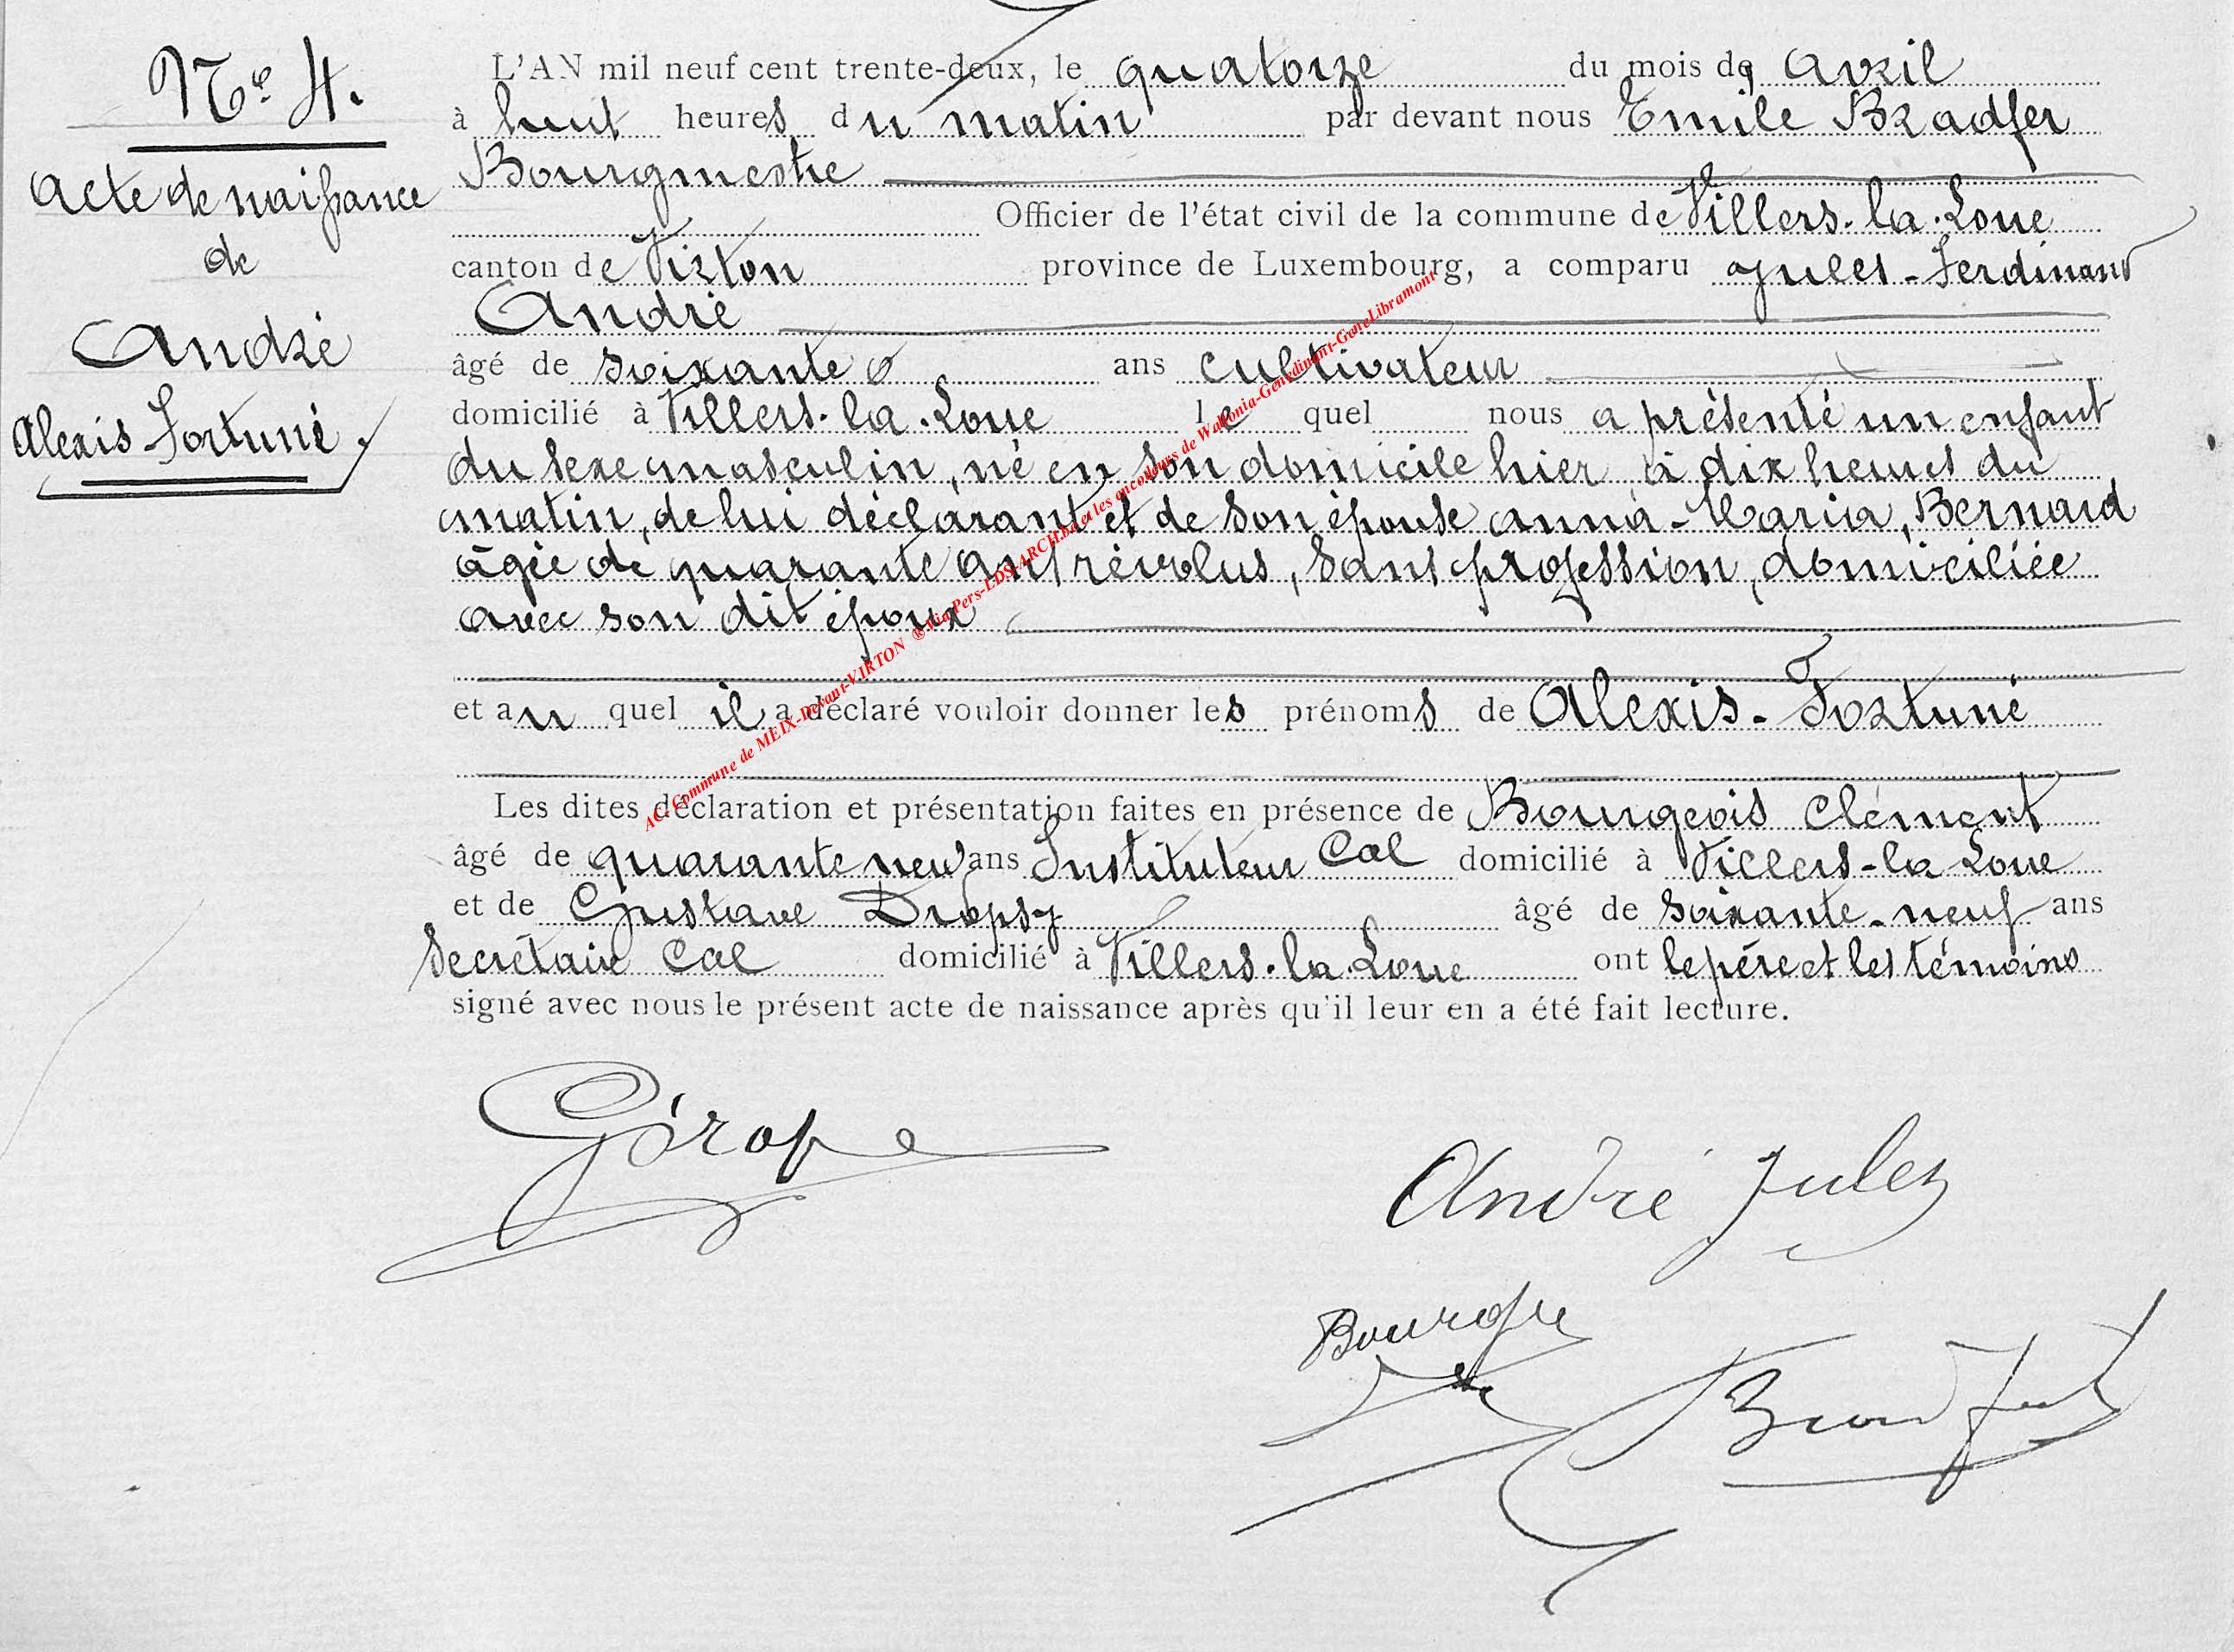 Nº 4.
Acte de naissance
de
André
Alexis-Fortuné
L'AN mil neuf cent trente-deux, le quatorze du mois de avril
à huit heures du matin par devant nous Emile Bradfer
Bourgmestre
Officier de l'état civil de la commune de Villers-la-Loue
canton de Virton province de Luxembourg, a comparu Jules-Ferdinand
André
âgé de soixante ans cultivateur
domicilié à Villers-la-Loue le quel nous a présenté un enfant
du sexe masculin, né en son domicile hier à dix heures du
matin, de lui déclarant et de son épouse Anna-Maria, Bernard
âgée de quarante ans révolus, sans profession, domiciliée
avec son dit époux
et au quel il a déclaré vouloir donner les prénoms de Alexis-Fortuné
Les dites déclaration et présentation faites en présence de Bourgeois Clément
âgé de quarante neuf ans Instituteur Cal domicilié à Villers-la Loue
et de Gustave Dropsy âgé de soixante-neuf ans
Secrétaire Cal domicilié à Villers-la-Loue ont le père et les témoins
signé avec nous le présent acte de naissance après qu'il leur en a été fait lecture.
André Jules
AC. Commune de MEIX-Devant-VIRTON ® Via Pers-LDS-ARCH.be et les encodeurs de Wallonia-Genedinant-GeneLibramont